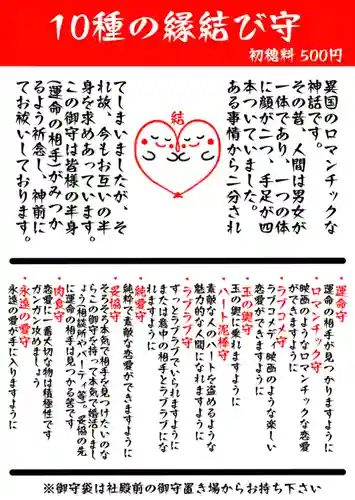 10種の縁結び守
初穂料 500円
異国のロマンチックな
神話です。
その昔、人間は男女が
一体であり、一つの体
に顔が二つ、手足が四
本ついていました。
ある事情から二分され
結
てしまいましたが、そ
れ故、今もお互いの半
身を求めあっています。
この御守は皆様の半身
(運命の相手)がみつか
るよう祈念し、神前に
てお祓いしております。
・運命守
運命の相手が見つかりますように
・ロマンチック守
映画のようなロマンチックな恋愛
ができますように
・ラブコメ守
ラブコメディ映画のような楽しい
恋愛ができますように
・玉の輿守
玉の輿に乗れますように
・ハート泥棒守
素敵な人のハートを盗めるような
魅力的な人間になれますように
・ラブラブ守
ずっとラブラブでいられますように
または意中の相手とラブラブにな
れますように
・純愛守
純粋で素敵な恋愛ができますように
・妥協守
そろそろ本気で相手を見つけたいのな
らこの御守を持って本気で婚活しまし
ょう(相談所やパーティ等)。妥協の先
に運命の相手は見つかる筈です
・肉食守
恋愛に一番大切な物は積極性です
ガンガン攻めましょう
・永遠の愛守
永遠の愛が手に入りますように
※御守袋は社殿前の御守置き場からお持ち下さい